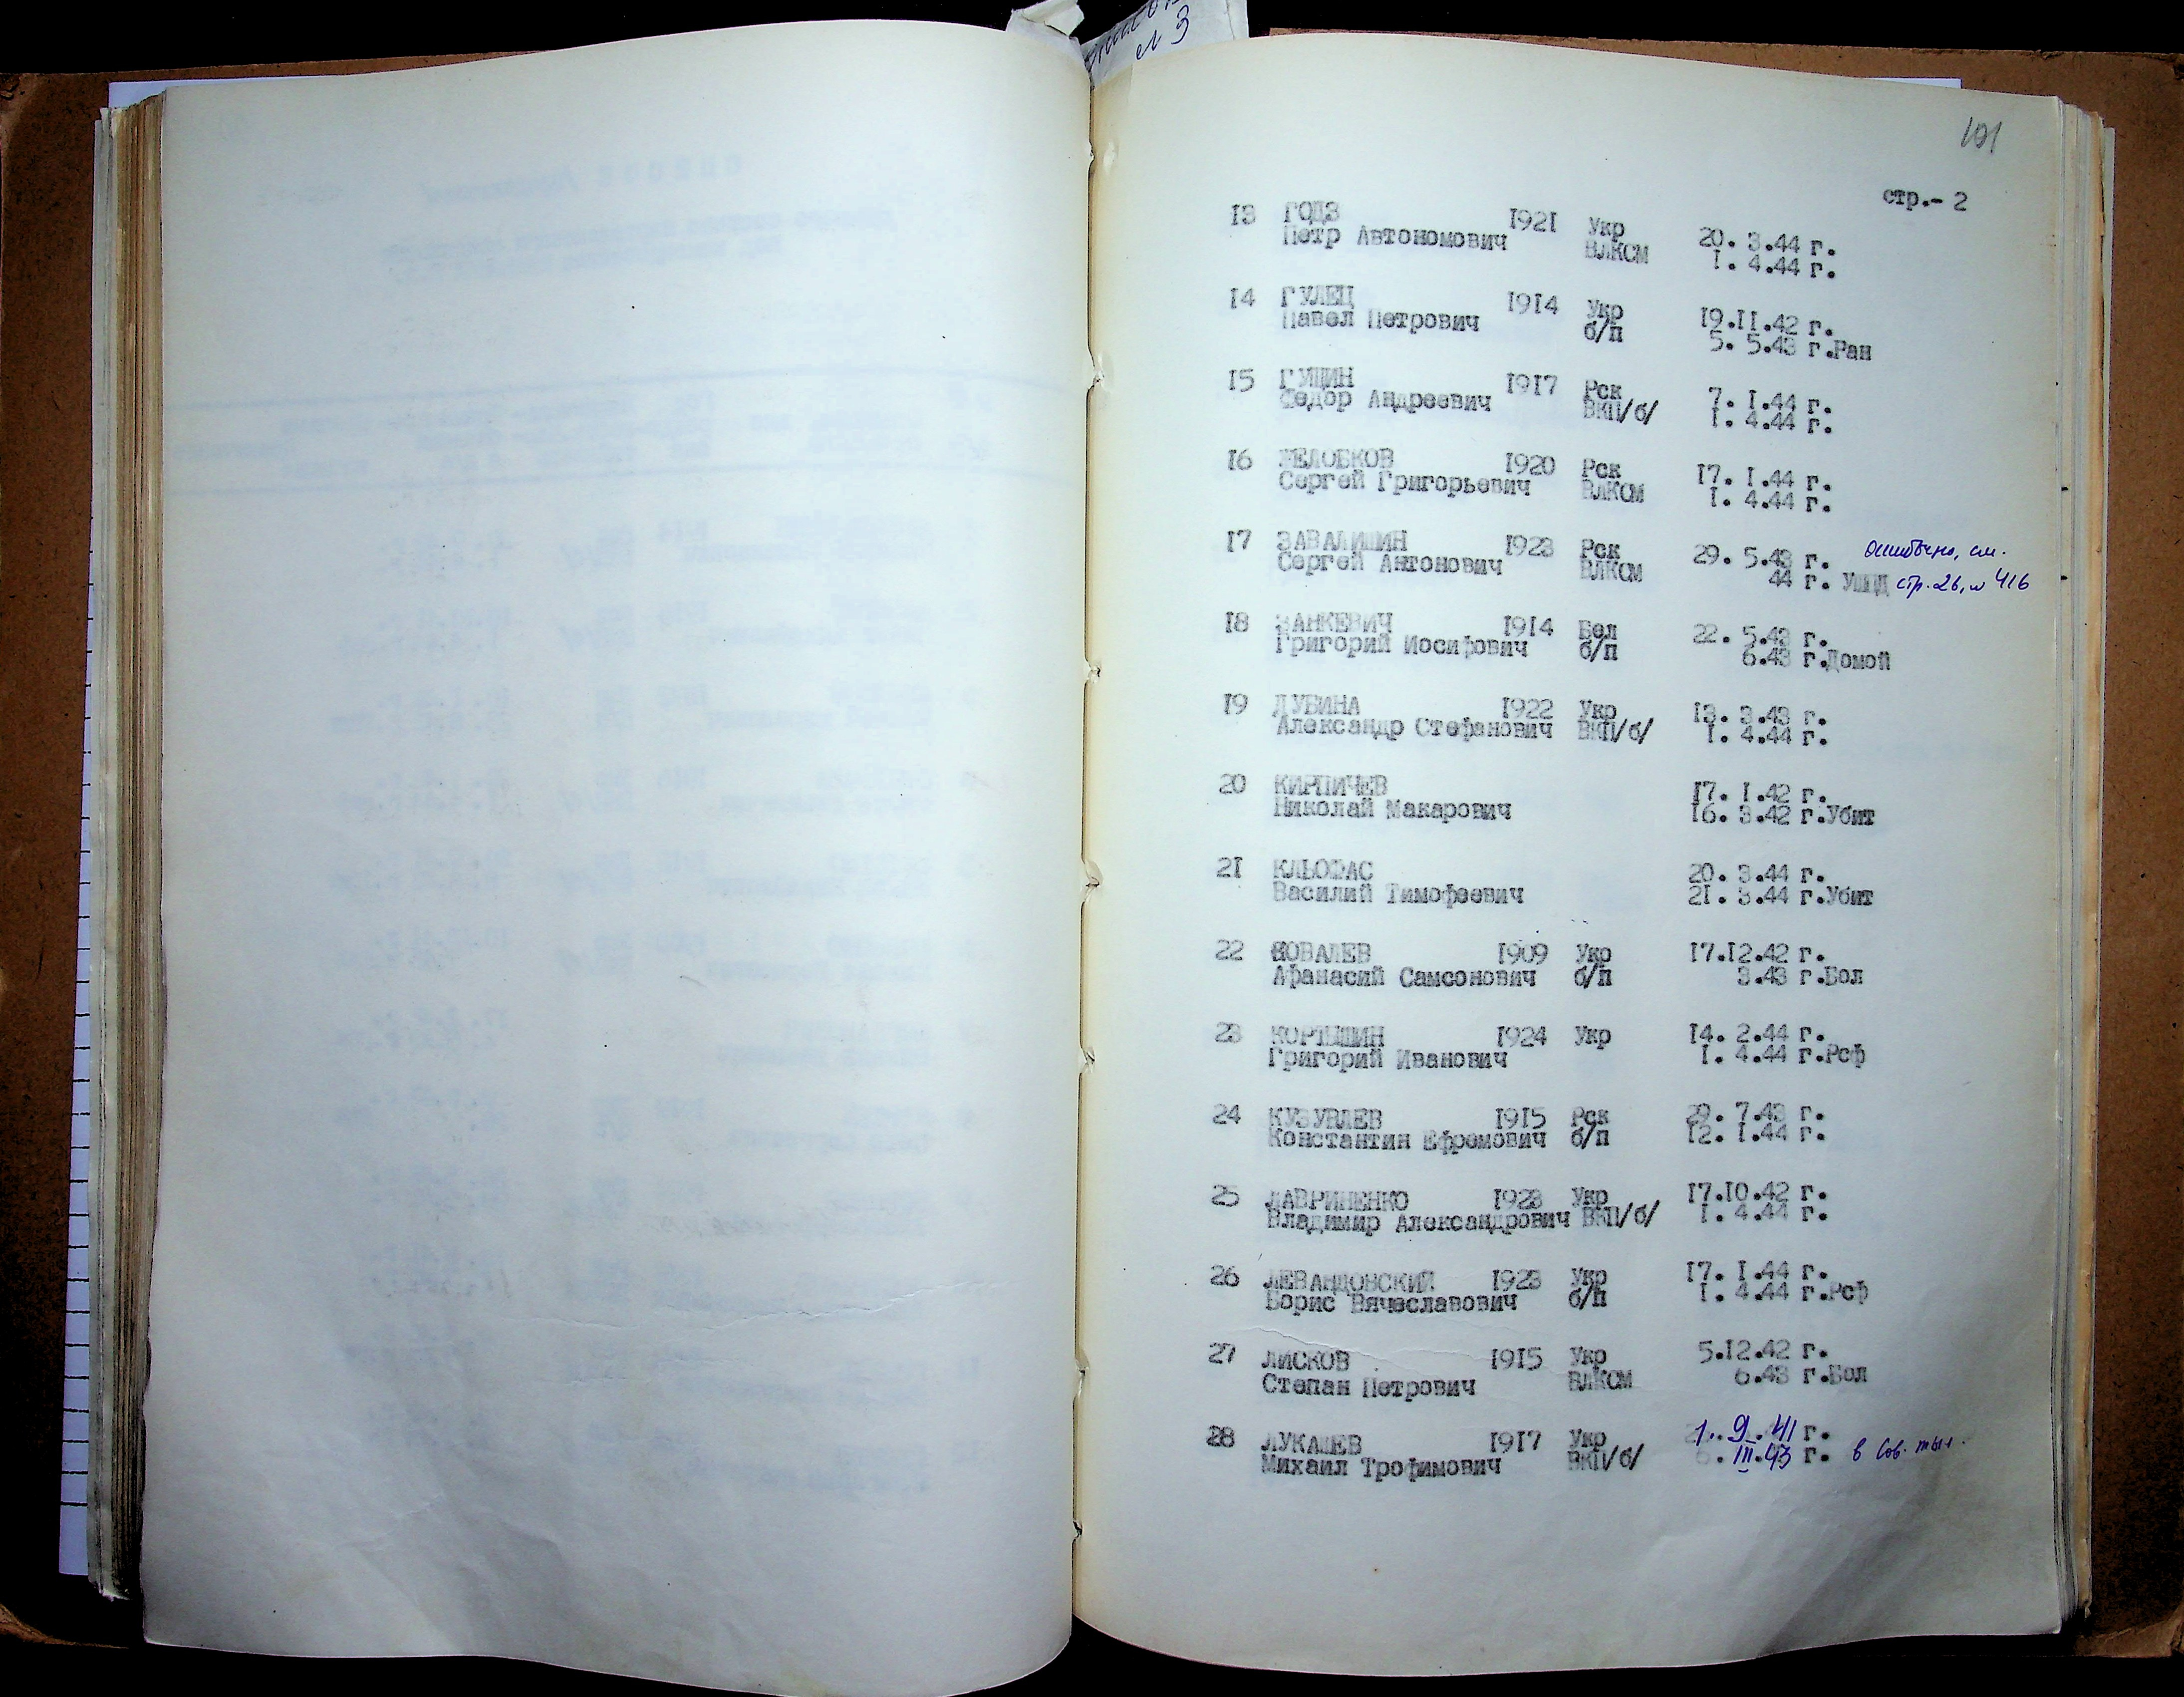 № 3
191
стр.- 2
13 ГОДЗ 1921 Укр 20. 3.44 г.
Петр Автономович ВЛКСМ 1. 4.44 г.
14 ГУЛЕЦ 1914 Укр 19.11.42 г.
Павел Петрович б/п 5. 5.43 г.Ран
15 ГУЩИН 1917 Рск 7. 1.44 г.
Федор Андреевич ВКП/б/ 1. 4.44 г.
16 ЖЕЛОБКОВ 1920 Рск 17. 1.44 г.
Сергей Григорьевич ВЛКСМ 1. 4.44 г.
17 ЗАВАЛИШИН 1923 Рск 29. 5.43 г. ошибочно, см.
Сергей Антонович ВЛКСМ 44 г. УШПД стр. 26, № 416
18 ЗАНКЕВИЧ 1914 Бел 22. 5.43 г.
Григорий Иосифович б/п 6.43 г.Домой
19 ДУБИНА 1922 Укр 13. 3.43 г.
Александр Стефанович ВКП/б/ 1. 4.44 г.
20 КИРПИЧЕВ 17. 1.42 г.
Николай Макарович 16. 3.42 г.Убит
21 КЛЬОФАС 20. 3.44 г.
Василий Тимофеевич 21. 3.44 г.Убит
22 КОВАЛЕВ 1909 Укр 17.12.42 г.
Афанасий Самсонович б/п 3.43 г.Бол
23 КОРТЫШИН 1924 Укр 14. 2.44 г.
Григорий Иванович 1. 4.44 г.Рсф
24 КУЗУВЛЕВ 1915 Рск 29. 7.43 г.
Константин Ефремович б/п 12. 1.44 г.
25 ЛАВРИНЕНКО 1923 Укр 17.10.42 г.
Владимир Александрович ВКП/б/ 1. 4.44 г.
26 ЛЕВАНДОВСКИЙ 1923 Укр 17. 1.44 г.
Борис Вячеславович б/п 1. 4.44 г.Рсф
27 ЛИСКОВ 1915 Укр 5.12.42 г.
Степан Петрович ВЛКСМ 6.43 г.Бол
28 ЛУКАШЕВ 1917 Укр 1. 9. 41 г.
Михаил Трофимович ВКП/б/ III.43 г. в Сов. тыл.